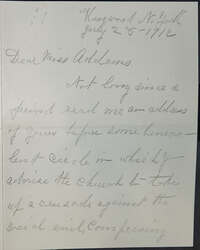 July 25-1912
Dear Miss Addams
Not long since a
friend sent me an address
of yours before some benevo-
lent circle in which
advise the church to take
up a crusade against the
social evil, comprising